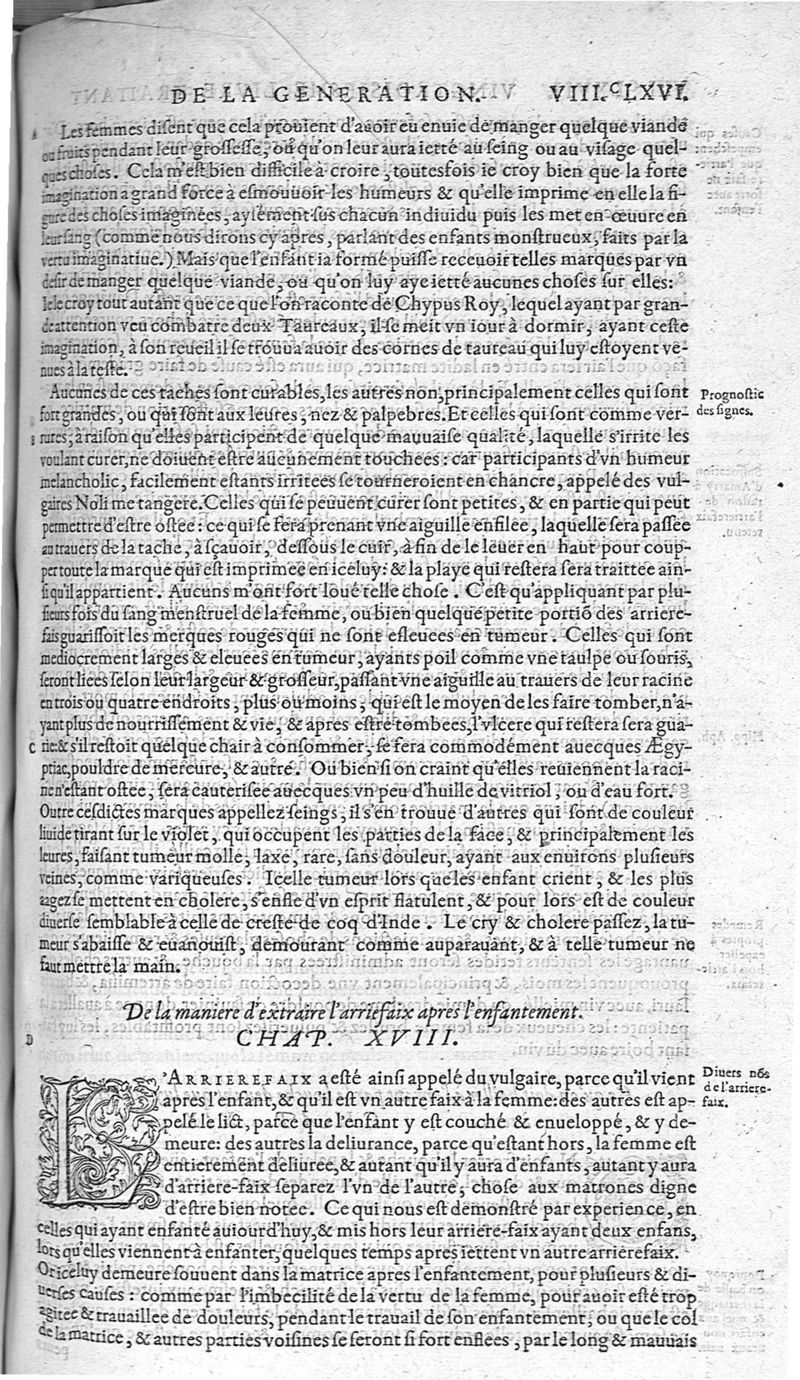 DE LA GENERATION. VIII.CLXVI.
A Les femmes disent que cela prouient d'auoir eu enuie de manger quelque viande
ou fruits pendant leur grossesse, ou qu'on leur aura ietté au seing ou au visage quel-
ques choses. Cela m'est bien difficile à croire, toutesfois ie croy bien que la forte
imagination a grand force à esmouuoir les humeurs & qu'elle imprime en elle la fi-
gure des choses imaginées, aysément sus chacun indiuidu puis les met en œuure en
leur sang (comme nous dirons cy apres, parlant des enfants monstrueux, faits par la
vertu imaginatiue.) Mais que l'enfant ia formé puisse receuoir telles marques par vn
desir de manger quelque viande, ou qu'on luy aye ietté aucunes choses sur elles:
Ie le croy tout autant que ce que l'on raconte de Chypus Roy, lequel ayant par gran-
de attention veu combatre deux Taureaux, il se meit vn iour à dormir, ayant ceste
imagination, à son reueil il se trouua auoir des cornes de taureau qui luy estoyent ve-
nues à la teste.
Aucunes de ces taches sont curables, les autres non, principalement celles qui sont
fort grandes, ou qui sont aux leures, nez & palpebres. Et celles qui sont comme ver-
Prognostic
des signes.
B rures, à raison qu'elles participent de quelque mauuaise qualité, laquelle s'irrite les
voulant curer, ne doiuent estre aucunement touchées: car participants d'vn humeur
melancholic, facilement estants irritées se tourneroient en chancre, appelé des vul-
gaires Noli me tangere. Celles qui se peuuent curer sont petites, & en partie qui peut
permettre d'estre ostée: ce qui se fera prenant vne aiguille enfilée, laquelle sera passée
au trauers de la tache, à sçauoir, dessous le cuir, à fin de le leuer en haut pour coup-
per toute la marque qui est imprimee en iceluy: & la playe qui restera sera traittée ain-
si qu'il appartient. Aucuns m'ont fort loué telle chose. C'est qu'appliquant par plu-
sieurs fois du sang menstruel de la femme, ou bien quelque petite portiō des arriere-
fais guarissoit les merques rouges qui ne sont esleuees en tumeur. Celles qui sont
mediocrement larges & eleuees en tumeur, ayants poil comme vne taulpe ou souris,
seront liées selon leur largeur & grosseur, passant vne aiguille au trauers de leur racine
en trois ou quatre endroits, plus ou moins, qui est le moyen de les faire tomber, n'a-
yant plus de nourrissement & vie, & apres estre tombees, l'vlcere qui restera sera gua-
C rie: & s'il restoit quelque chair à consommer, se fera commodément auecques Ægy-
ptiac, pouldre de mercure, & autre. Ou bien si on craint qu'elles reuiennent la raci-
ne n'estant ostee, sera cauterisee auecques vn peu d'huille de vitriol, ou d'eau fort.
Outre cesdictes marques appellez seings, il s'en trouue d'autres qui sont de couleur
liuide tirant sur le violet, qui occupent les parties de la face, & principalement les
leures, faisant tumeur molle, laxe, rare, sans douleur, ayant aux enuirons plusieurs
veines, comme variqueuses. Icelle tumeur lors que les enfant crient, & les plus
aagez se mettent en cholere, s'enfle d'vn esprit flatulent, & pour lors est de couleur
diuerse semblable à celle de creste de coq d'Inde. Le cry & cholere passez, la tu-
meur s'abaisse & euanouist, demourant comme auparauant, & à telle tumeur ne
faut mettre la main.
De la maniere d'extraire l'arriefaix apres l'enfantement.
D CHAP. XVIII.
L'ARRIEREFAIX a esté ainsi appelé du vulgaire, parce qu'il vient
Diuers nōs
de l'arriere-
faix.
apres l'enfant, & qu'il est vn autre faix à la femme: des autres est ap-
pelé le lict, parce que l'enfant y est couché & enueloppé, & y de-
meure: des autres la deliurance, parce qu'estant hors, la femme est
entierement deliuree, & autant qu'il y aura d'enfants, autant y aura
d'arriere-faix separez l'vn de l'autre, chose aux matrones digne
d'estre bien notee. Ce qui nous est demonstré par experience, en
celles qui ayant enfanté auiourd'huy, & mis hors leur arriere-faix ayant deux enfans,
lors qu'elles viennent à enfanter, quelques temps apres iettent vn autre arrierefaix.
Or iceluy demeure souuent dans la matrice apres l'enfantement, pour plusieurs & di-
uerses causes: comme par l'imbecilité de la vertu de la femme, pour auoir esté trop
agitee & trauaillee de douleurs, pendant le trauail de son enfantement, ou que le col
de la matrice, & autres parties voisines se seront si fort enflees, par le long & mauuais